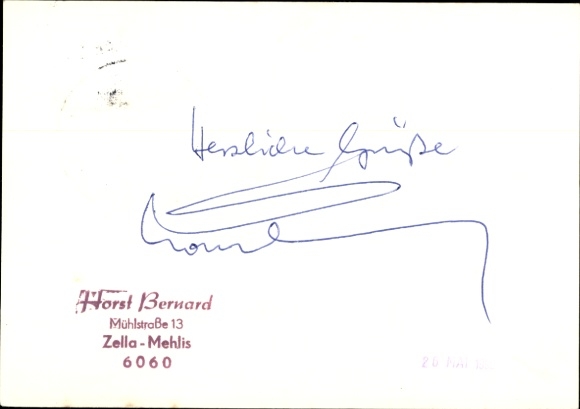 Herzliche Grüße
Horst Bernard
Mühlstraße 13
Zella - Mehlis
6060